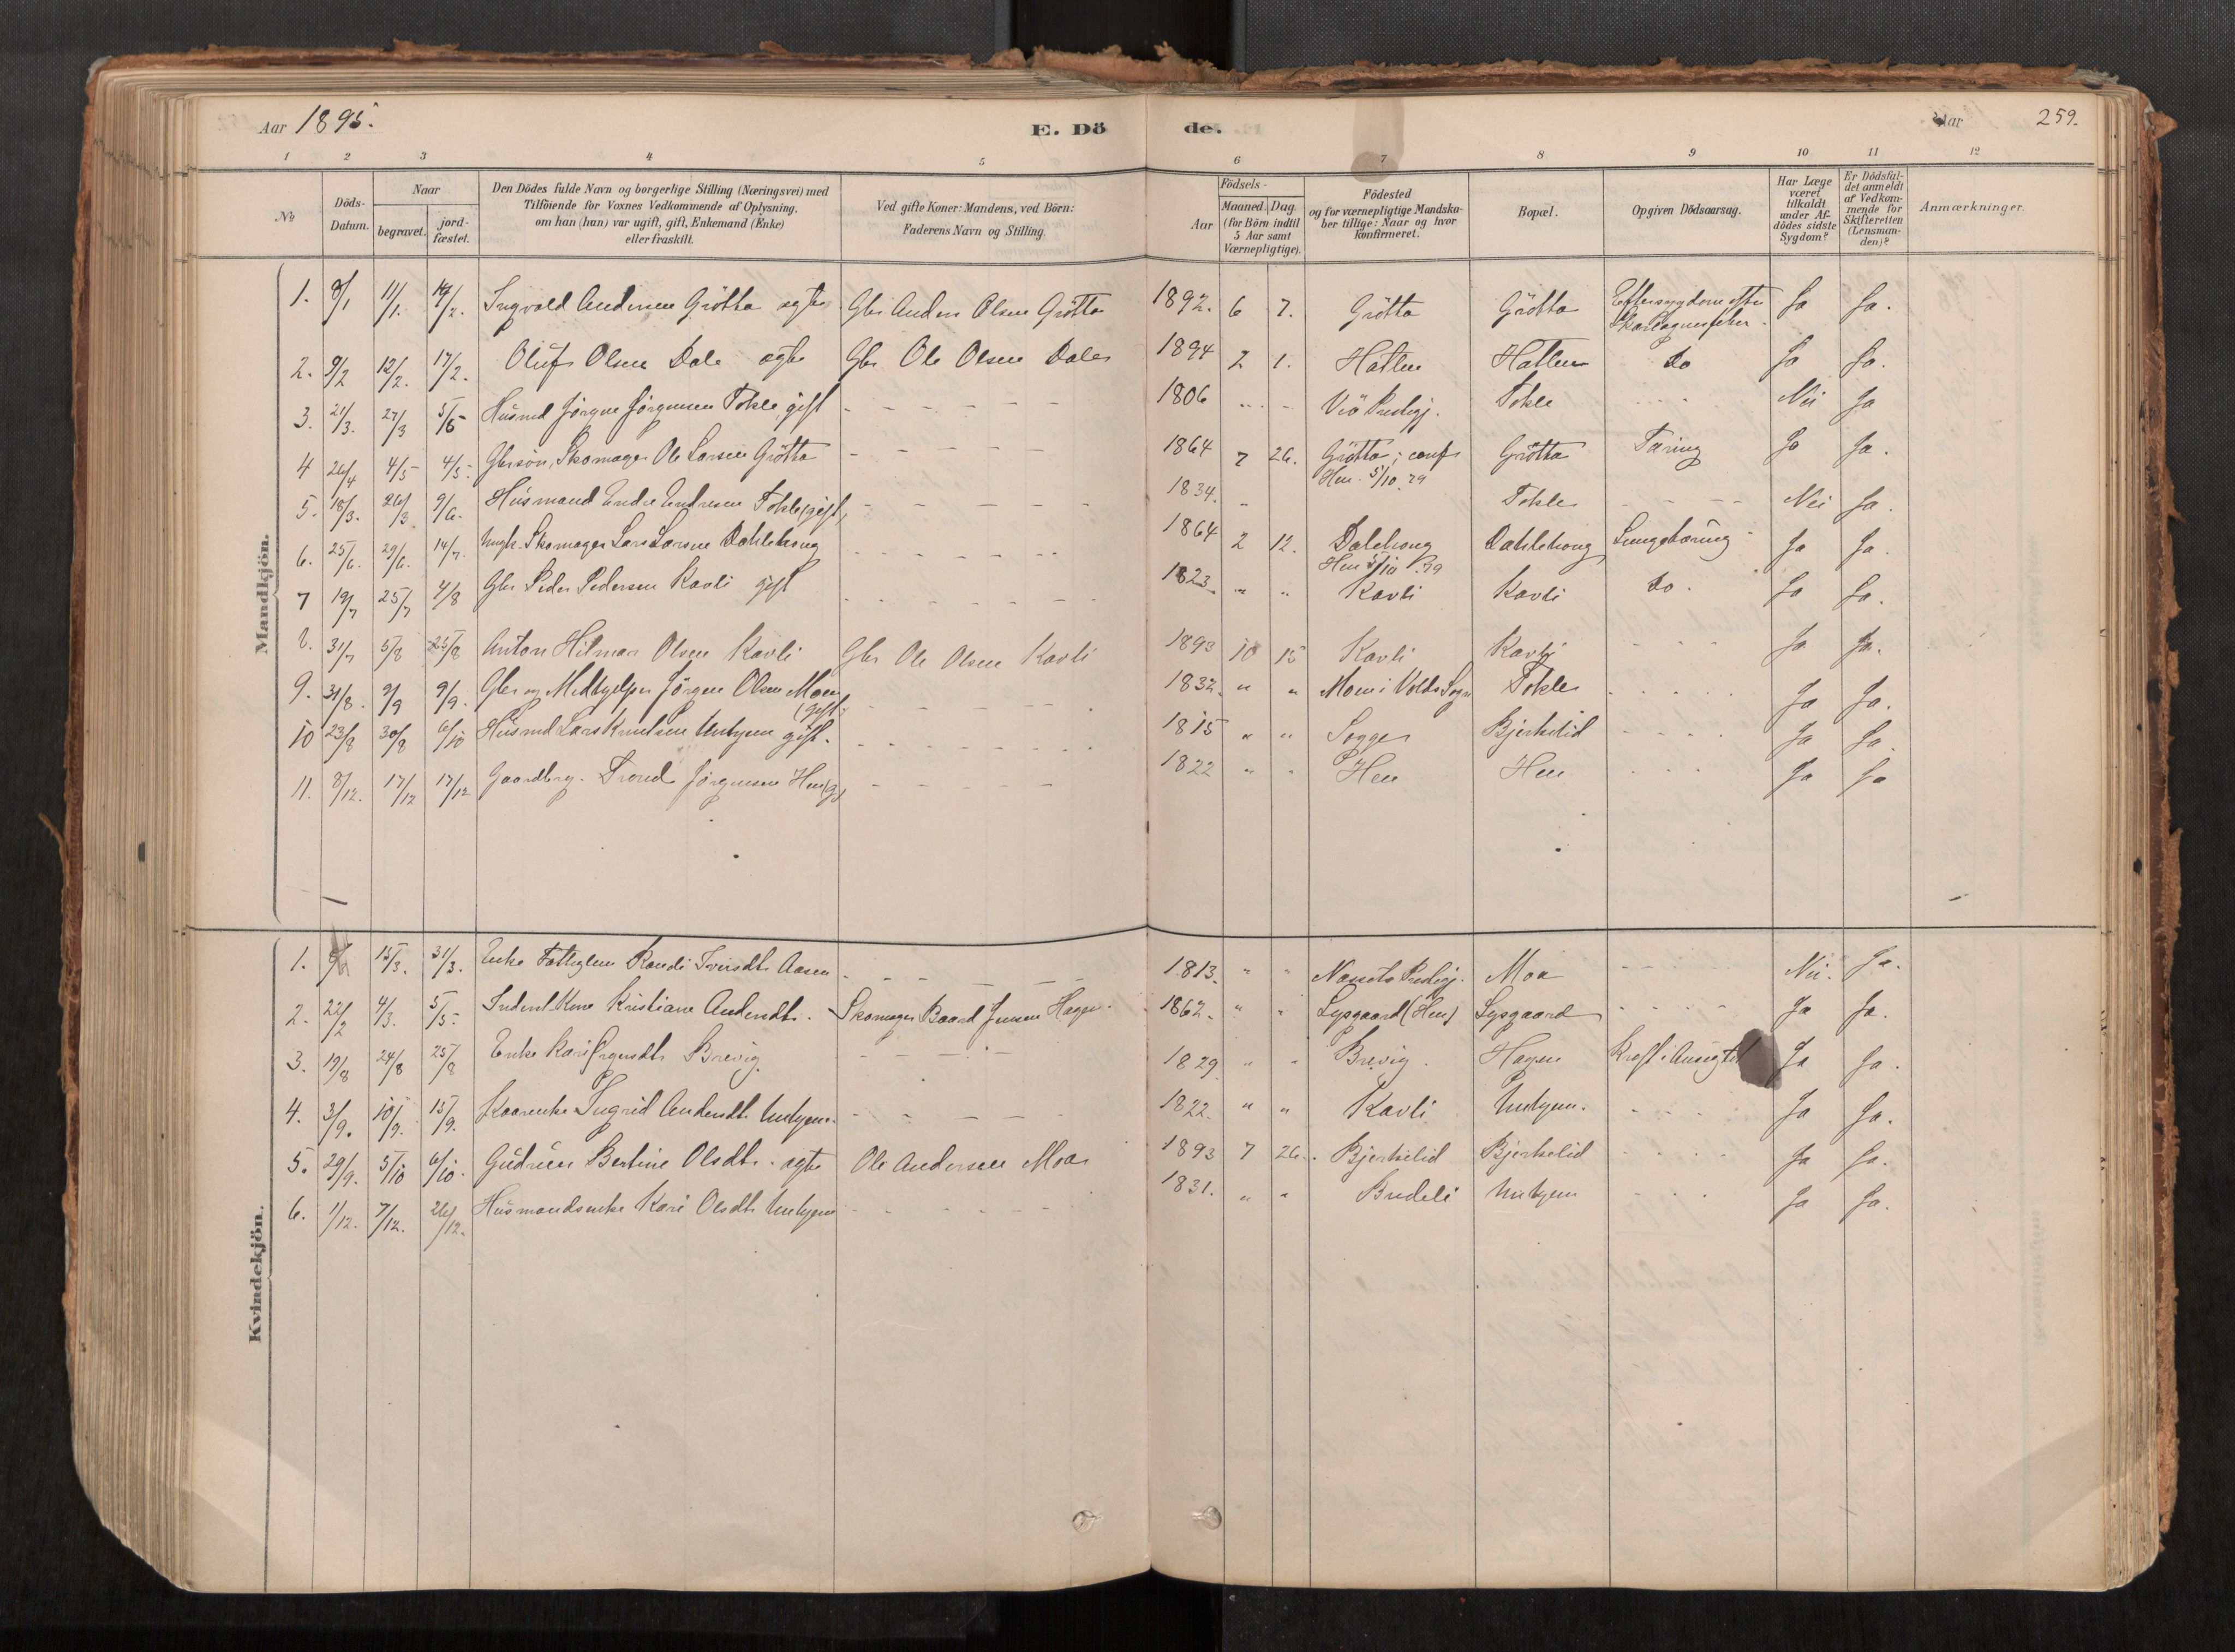 Aar 1895.
E. Döde.
Aar
259.
1 2 3 4 5 6 7 8 9 10 11 12
No
Döds-Datum.
Naar
begravet.
jord-fæstet.
Den Dödes fulde Navn og borgerlige Stilling (Næringsvei) med
Tilföiende for Voxnes Vedkommende af Oplysning.
om han (hun) var ugift, gift, Enkemand (Enke)
eller fraskilt.
Ved gifte Koner: Mandens, ved Börn:
Faderens Navn og Stilling.
Födsels-
Aar
Maaned. Dag.
(for Börn indtil
5 Aar samt
Værnepligtige).
Födested
og for værnepligtige Mandska-
ber tillige: Naar og hvor
konfirmeret.
Bopæl.
Opgiven Dödsaarsag.
Har Læge
været
tilkaldt
under Af-
dödes sidste
Sygdom?
Er Dödsfal-
det anmeldt
af Vedkom-
mende for
Skifteretten
(Lensman-
den)?
Anmærkninger.
Mandkjön.
1. 8/1 11/1. 17/2. Ingvald Andersen Grötta ægte Gbr Anders Olsen Grötta 1892. 6 7. Grötta Grötta Eftersygdom efter Skarlagensfeber. Ja Ja.
2. 9/2 12/2. 17/2. Oluf Olsen Dale ægte Gbr Ole Olsen Dale 1894 2 1. Hatlen Hatlen Do Ja Ja.
3. 21/3. 27/3 5/5 Husmd Jörgen Jörgensen Tokle gift - - - - - 1806 " - Veö Prstgj. Tokle - - - Nei Ja
4 26/4 4/5 4/5- Gbrsön, Skomager Ole Larsen Grötta - - - - - 1864 7 26. Grötta; conf. Hen 5/10 79 Grötta Tæring Ja Ja.
5. 18/3. 26/3 9/6. Husmand Endre Endresen Tokle, gift, - - - - - 1834. " Tokle - - - Nei Ja.
6. 25/6. 29/6. 14/7. Ungk. Skomager Lars Larsen Dahlehoug - - - - - 1864 2 12. Dalehoug Hen 5/10 79 Dahlehoug Lungetæring Ja Ja.
7 19/7 25/7 4/8 Gbr Peder Pedersen Kavli gift - - - - - 1823. " " Kavli Kavli Do. Ja Ja.
8. 31/7 5/8 25/8 Anton Hilmar Olsen Kavli Gbr Ole Olsen Kavli 1893 10 15 Kavli Kavli - - - Ja Ja.
9. 31/8. 9/9 9/9. Gbr og Medhjelper Jörgen Olsen Moen (gift) - - - - - 1832. " " Moen i Volds Sogn Tokle - - - Ja Ja.
10 23/8 30/8 6/10 Husmd Lars Knudsen Unhjem gift. - - - - - 1815 " " Sogge Bjerkelid - - - Ja Ja.
11. 8/12. 17/12 17/12 Gaardbrg. Trond Jörgensen Hen (g) - - - - - 1822 " " Hen Hen - - - Ja Ja
Kvindekjön.
1. 13/3. 31/3. Enke Fattiglem Randi Iversdtr Aasen - - - - 1813. " " Nessets Prstgj. Moa - - - Nei. Ja.
2. 22/2 4/3. 5/5. Inderst Kone Kristiane Andersdtr. Skomager Baard Jensen Hagen. 1862. " " Lysgaard (Hen) Lysgaard - - - Ja Ja.
3. 19/8 24/8 25/8 Enke Kari Jörgensdtr Brevig. - - - 1829 " " Brevig Hagen Kræft i Ansigtet Ja Ja.
4. 3/9. 10/9. 15/9. Kaarenke Ingrid Andersdtr Unhjem. - - - - 1822. " " Kavli Unhjem. - - - Ja Ja.
5. 29/9. 5/10 6/10. Gudrun Bertine Olsdtr. ægte Ole Andersen Moa 1893 7 26. Bjerkelid Bjerkelid - - - Ja Ja.
6. 1/12. 7/12. 26/12. Husmandsenke Kari Olsdtr Unhjem - - - - - 1831. " " Bredeli Unhjem - - - Ja Ja.